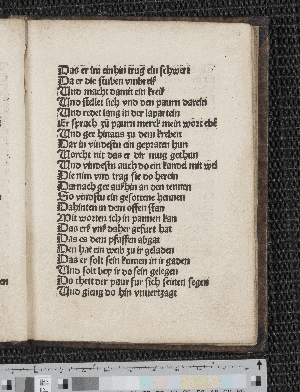 Das er im einhin trug ein schwert
Da er die stuben vmbreiß
Vnd macht damit ein kreiß
Vnd stellet sich vnd den paurn darein
Vnd redet lang in der lapartein
Er sprach zu paurn merck mein wort ebē
Vnd gee hinaus zu dem kreben
Dar in vindestu ein gepraten hun
Vorcht nit das er dir mug gethun
Vnd vindestu auch do ein kandel mit wei
Die nim vnd trag sie do herein
Darnach gee auch hin an den tennen
So vindstu ein gesottene hennen
Dahinten in dem offen stan
Mit worten ich in pannen kan
Das erß vnß daher gefurt hat
Das es dem pfaffen abgat
Den hat ein weib zu ir geladen
Das er solt sein komen in ir gaden
Vnd solt bey ir do sein gelegen
Do thett der paur fur sich seinen segen
Vnd gieng do hin vnuertzagt